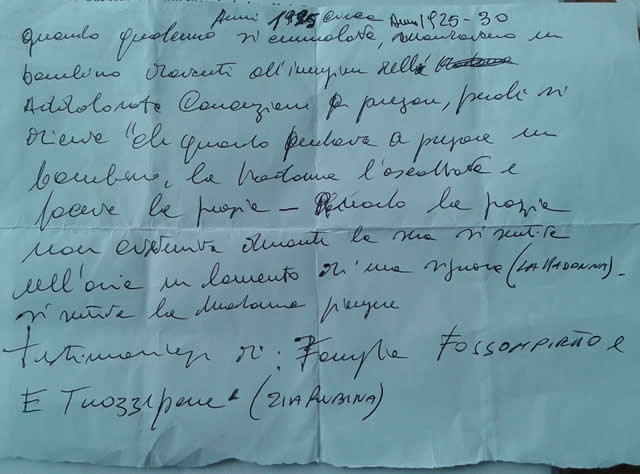 Anni 1925 circa Anni 1925-30
Quando qualcuno si ammalava, mandavano un
bambino davanti all'immagine della Madonna
Addolorata a pregare, perché si
diceva "che quando andava a pregare un
bambino, la Madonna l'ascoltava e
faceva la grazia - Quando la grazia
non avveniva durante la sera si sentiva
nell'aria un lamento di una signora (LA MADONNA).
si sentiva la Madonna piangere
Testimonianza di: Famiglia FOSSOMPIRÃO e
E (ZIA RUBINA)